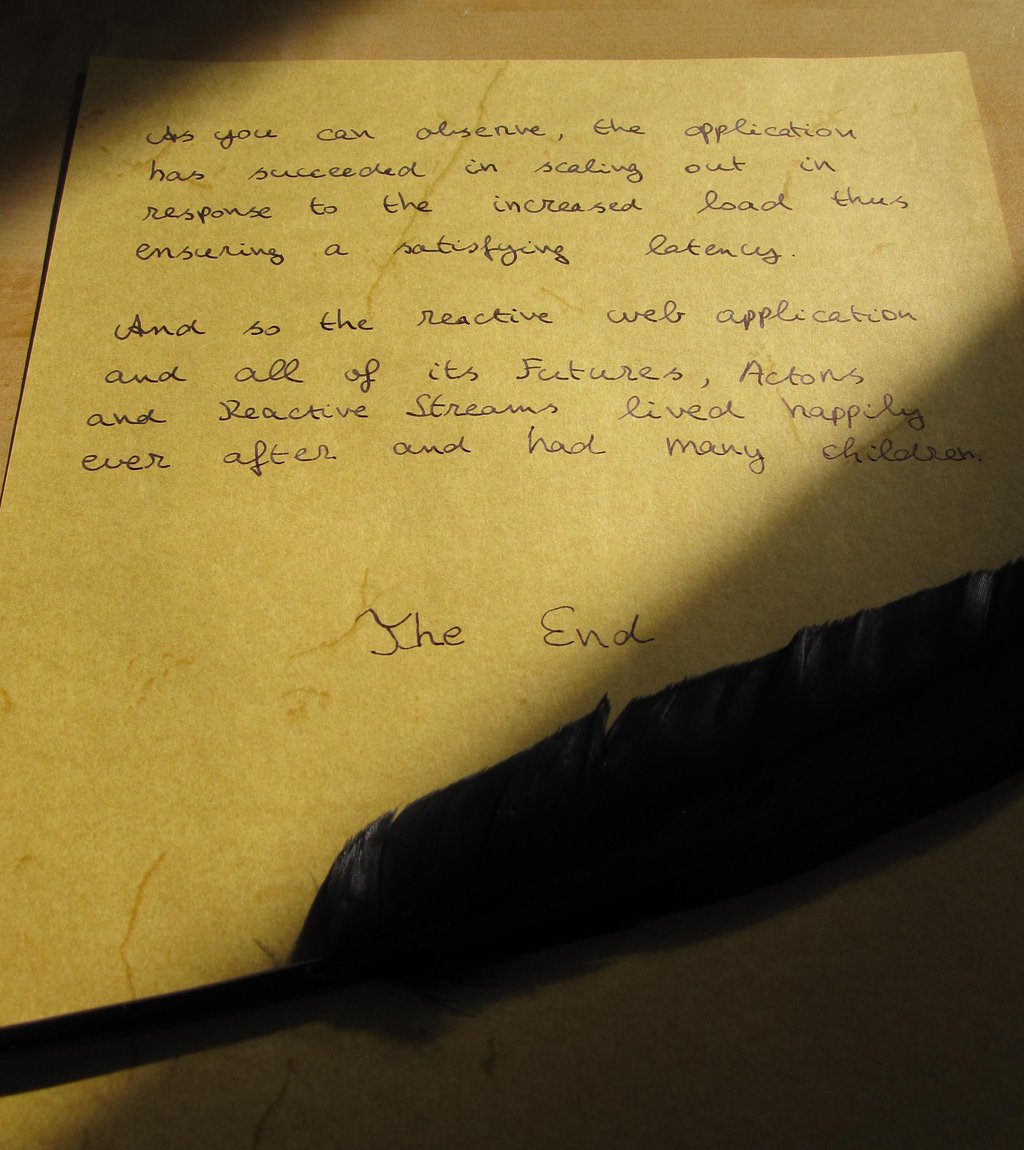 As you can observe, the application
has succeeded in scaling out in
response to the increased load thus
ensuring a satisfying latency.
And so the reactive web application
and all of its Futures, Actors
and Reactive Streams lived happily
ever after and had many children.
The End